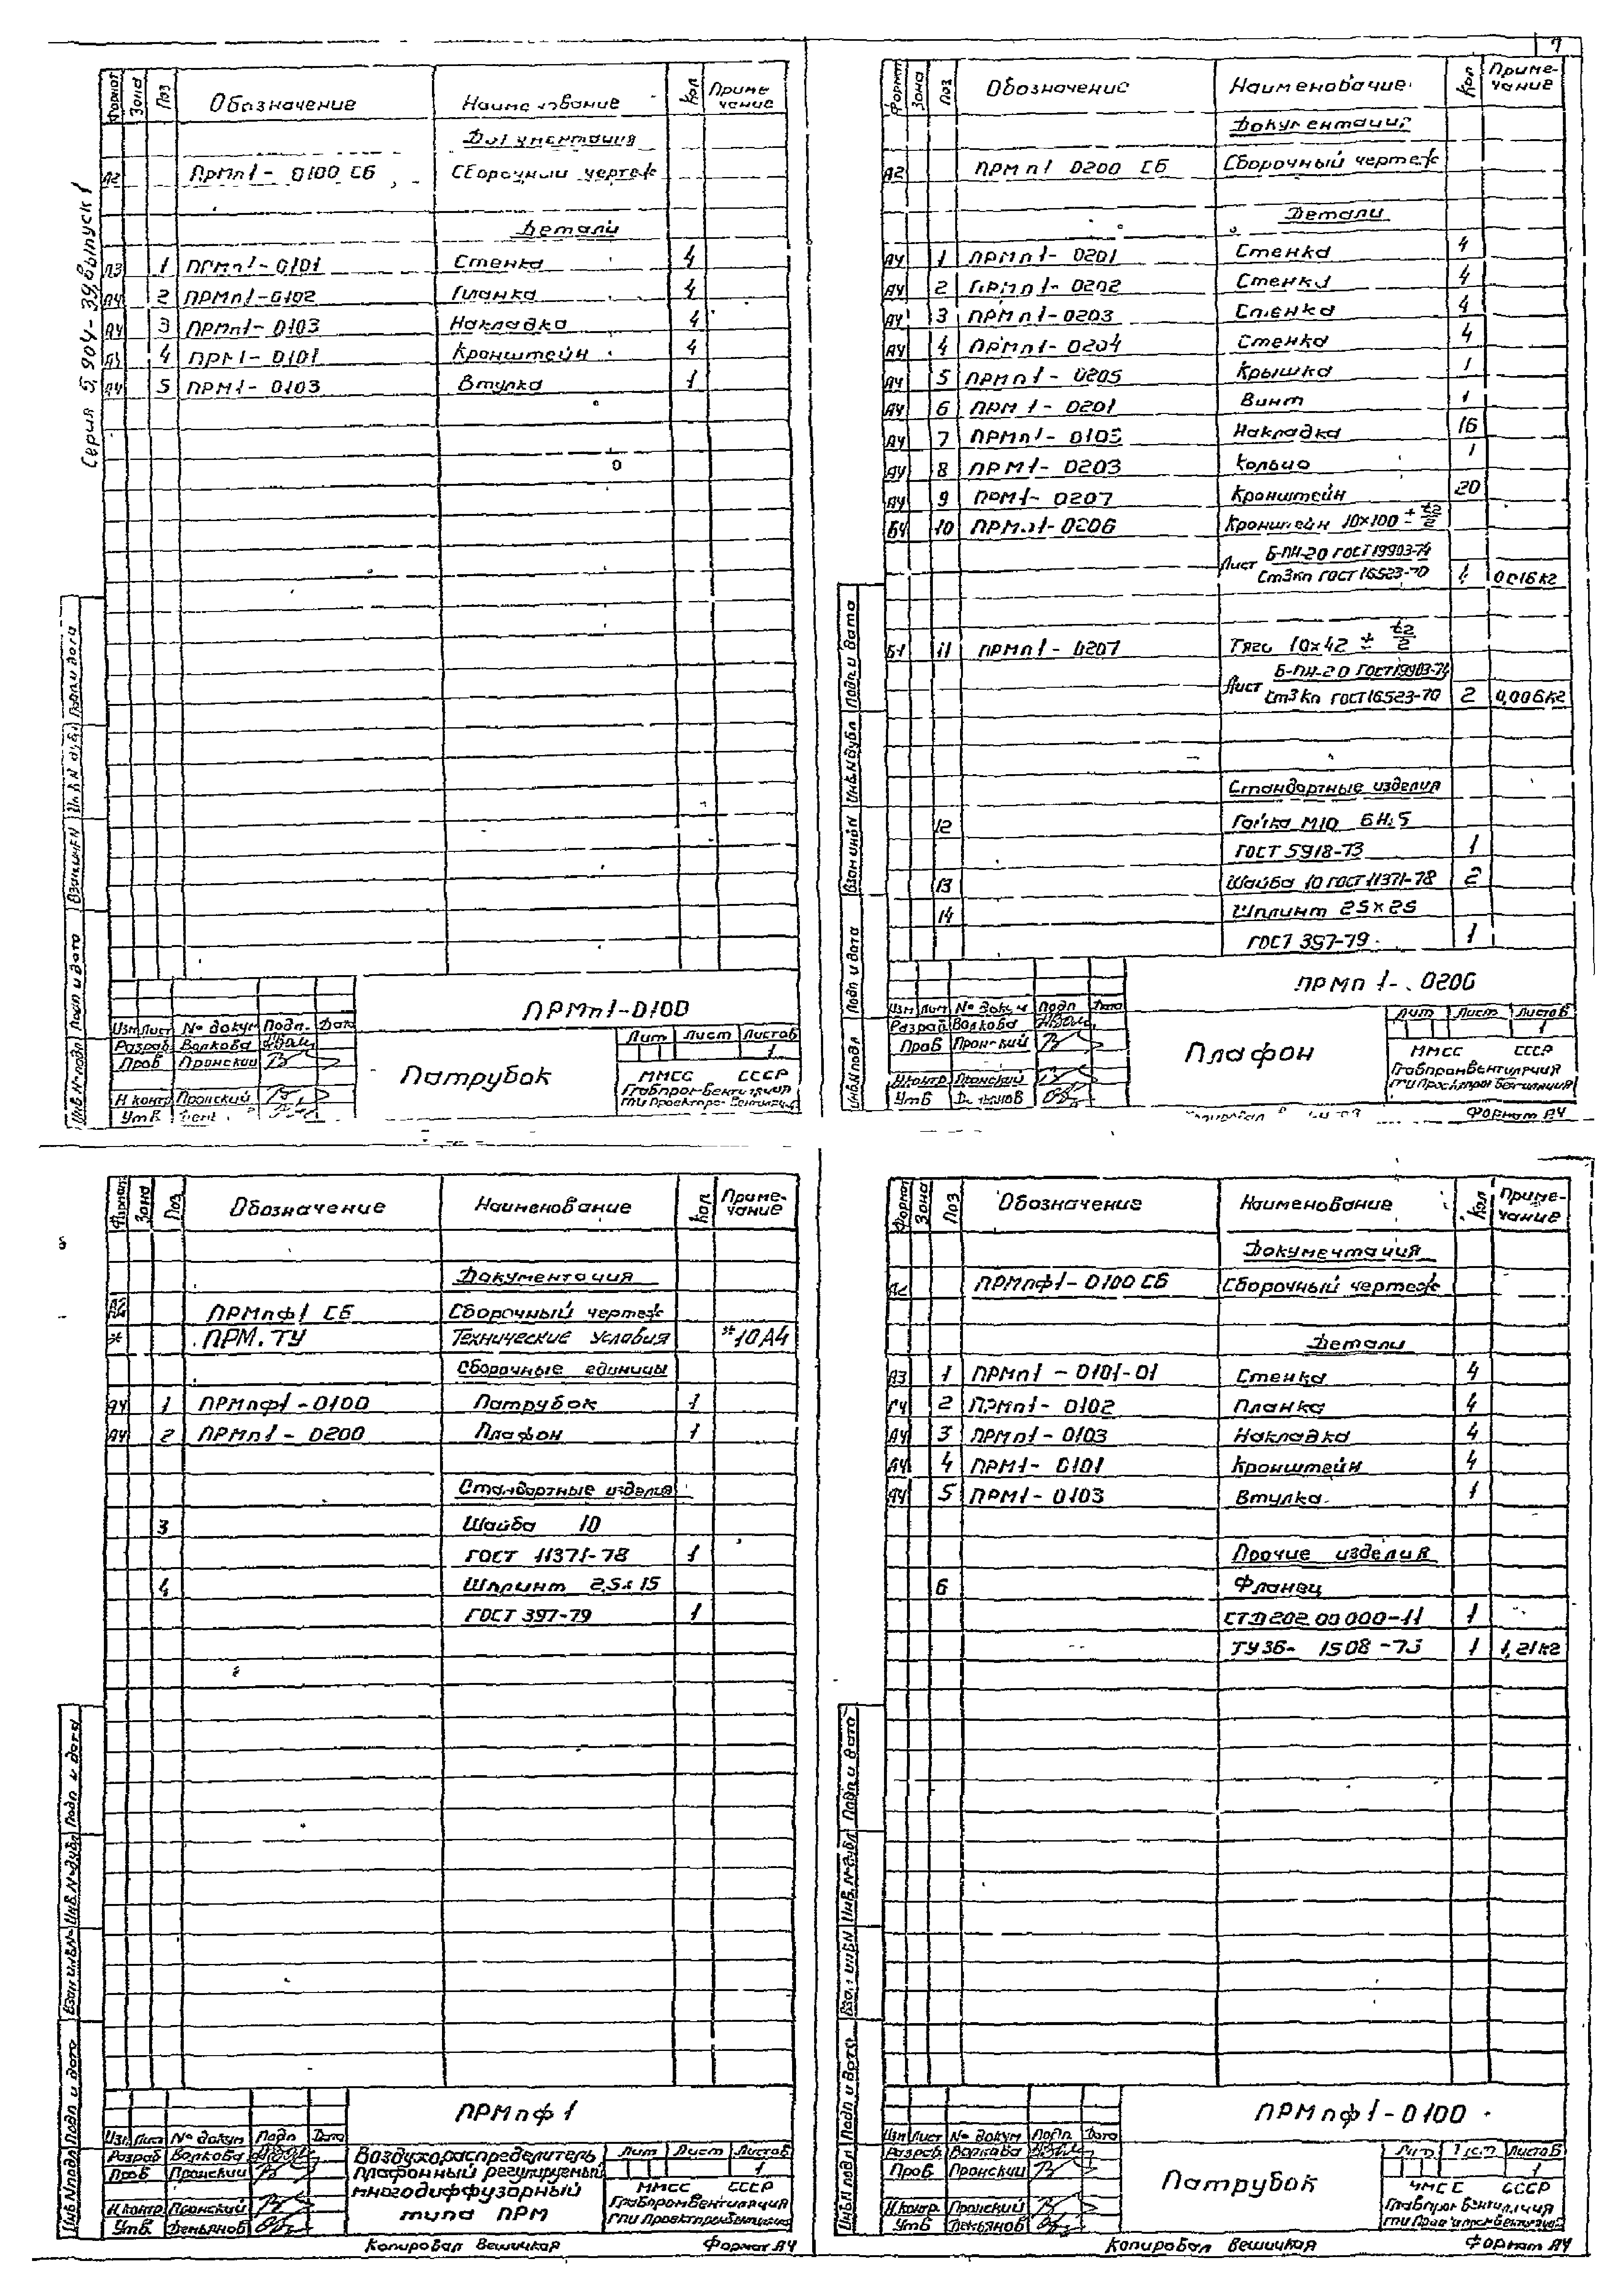 7
Серия 5.904-39, выпуск 1
Формат Зона Поз Обозначение Наименование Кол Примечание
Документация
А2 ПРМп1-0100 СБ Сборочный чертеж
Детали
А3 1 ПРМп1-0101 Стенка 4
А4 2 ПРМп1-0102 Планка 4
А4 3 ПРМп1-0103 Накладка 4
4 ПРМ1-0101 Кронштейн 4
А4 5 ПРМ1-0103 Втулка 1
ПРМп1-0100
Изм Лист № докум Подп. Дата
Разраб Волкова
Пров Пронский
Н контр Пронский
Утв
Патрубок
Лит Лист Листов
1
ММСС СССР
Главпромвентиляция
ГПИ Проектпромвентиляция
Инв.№ подл Подп и дата Взам инв N Инв.N дубл Подп и дата
Формат Зона Поз Обозначение Наименование Кол Примечание
Документация
А2 ПРМп1 0200 СБ Сборочный чертеж
Детали
А4 1 ПРМп1-0201 Стенка 4
А4 2 ПРМп1-0202 Стенка 4
А4 3 ПРМп1-0203 Стенка 4
А4 4 ПРМп1-0204 Стенка 4
А4 5 ПРМп1-0205 Крышка 1
А4 6 ПРМ1-0201 Винт 1
А4 7 ПРМп1-0103 Накладка 16
А4 8 ПРМ1-0203 Кольцо 1
А4 9 ПРМ1-0207 Кронштейн 20
БЧ 10 ПРМп1-0206 Кронштейн 10×100 ± t2/2
Лист Б-ПН-2.0 ГОСТ 19903-74
Ст3кп ГОСТ 16523-70 4 0,016кг
БЧ 11 ПРМп1-0207 Тяга 10×42 ± t2/2
Лист Б-ПН-2.0 ГОСТ 19903-74
Ст3кп ГОСТ 16523-70 2 0,006кг
Стандартные изделия
12 Гайка М10 6Н.5
ГОСТ 5918-73 1
13 Шайба 10 ГОСТ 11371-78 2
14 Шплинт 2,5×25
ГОСТ 397-79 1
ПРМп1-0200
Изм Лист № докум Подп Дата
Разраб Волкова
Пров Пронский
Н контр Пронский
Утв Демьянов
Плафон
Лит Лист Листов
1
ММСС СССР
Главпромвентиляция
ГПИ Проектпромвентиляция
Инв.N подл Подп и дата Взам инв N Инв.N дубл Подп и дата
Копировал Формат А4
Формат Зона Поз. Обозначение Наименование Кол. Примечание
Документация
А2 ПРМпф1 СБ Сборочный чертеж
* ПРМ.ТУ Технические условия *10А4
Сборочные единицы
А4 1 ПРМпф1-0100 Патрубок 1
А4 2 ПРМп1-0200 Плафон 1
Стандартные изделия
3 Шайба 10
ГОСТ 11371-78 1
4 Шплинт 2,5×15
ГОСТ 397-79 1
ПРМпф1
Изм. Лист № докум Подп Дата
Разраб Волкова
Пров Пронский
Н контр. Пронский
Утв. Демьянов
Воздухораспределитель
плафонный регулируемый
многодиффузорный
типа ПРМ
Лит Лист Листов
1
ММСС СССР
Главпромвентиляция
ГПИ Проектпромвентиляция
Инв.N подл Подп и дата Взам инв.N Инв.N дубл Подп и дата
Копировал Вешицкая Формат А4
Формат Зона Поз Обозначение Наименование Кол Примечание
Документация
А2 ПРМпф1-0100 СБ Сборочный чертеж
Детали
А3 1 ПРМп1-0101-01 Стенка 4
2 ПРМп1-0102 Планка 4
А4 3 ПРМп1-0103 Накладка 4
А4 4 ПРМ1-0101 Кронштейн 4
А4 5 ПРМ1-0103 Втулка 1
Прочие изделия
6 Фланец
СТД 202.00.000-11 1
ТУ36-1508-73 1 1,21кг
ПРМпф1-0100
Изм Лист № докум Подп Дата
Разраб Волкова
Пров Пронский
Н контр. Пронский
Утв Демьянов
Патрубок
Лит Лист Листов
1
ММСС СССР
Главпромвентиляция
ГПИ Проектпромвентиляция
Инв.N подл Подп и дата Взам инв.N Инв.N дубл Подп и дата
Копировал Вешицкая Формат А4